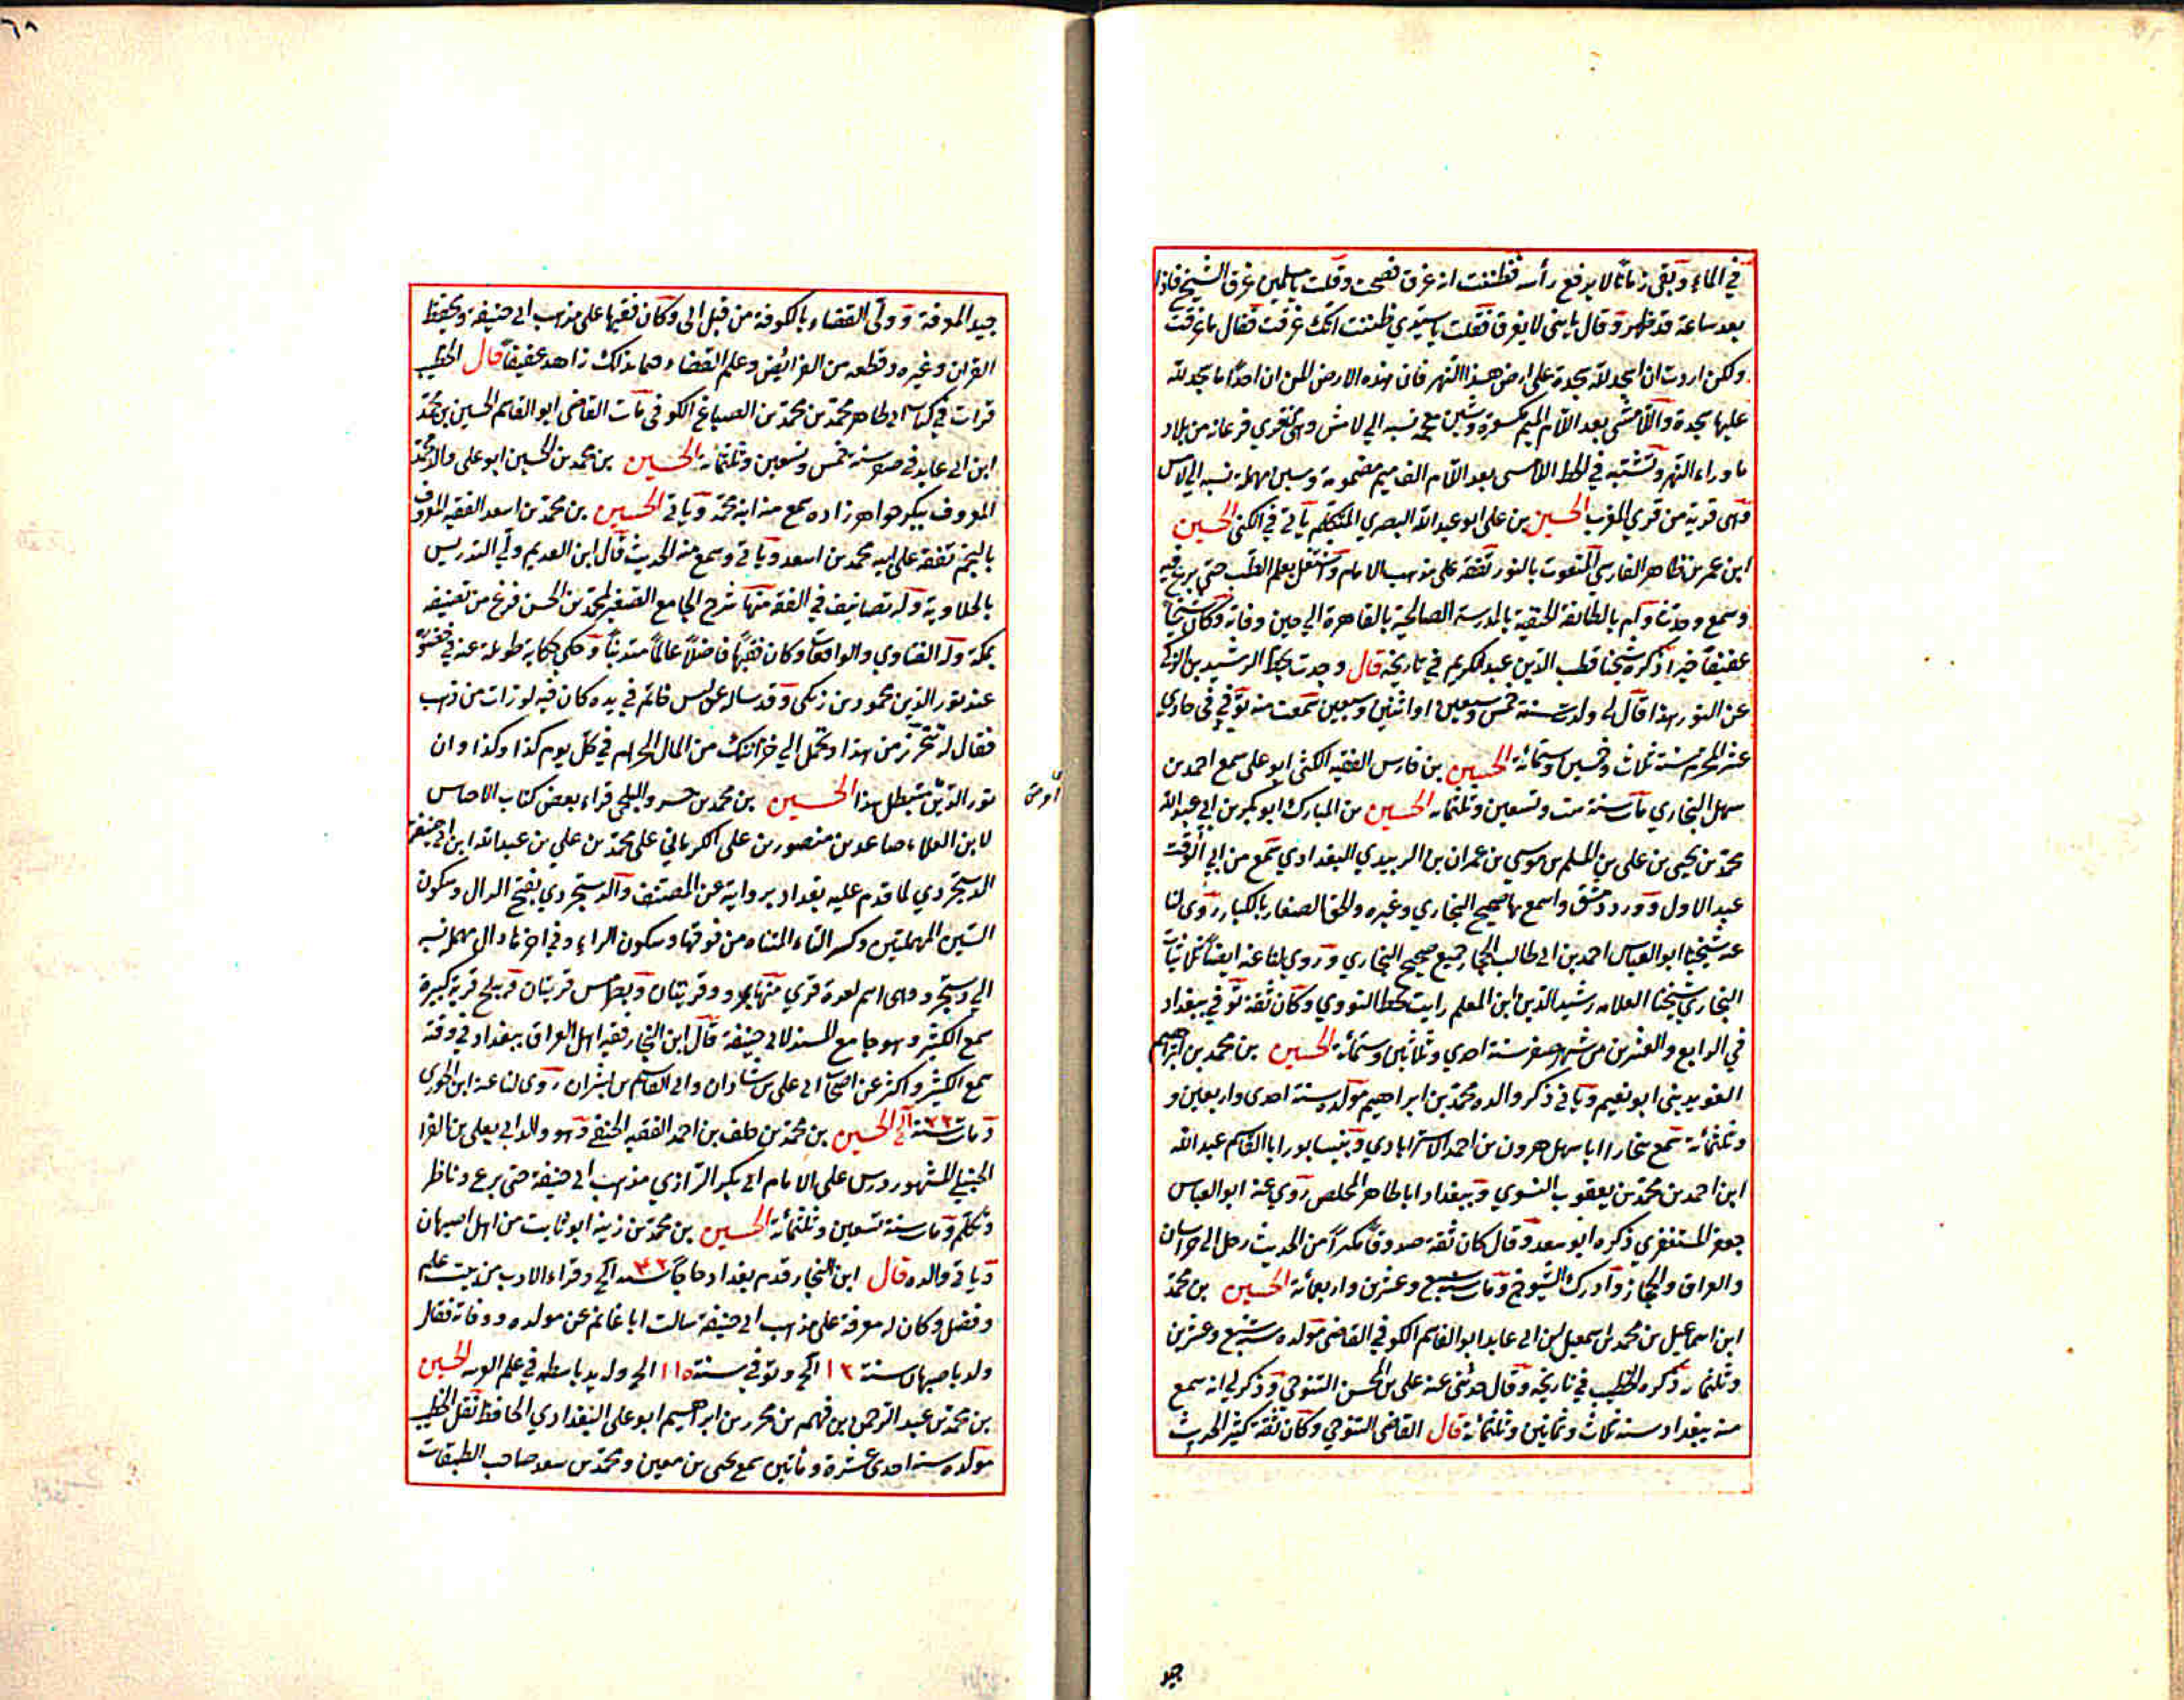 في الماء وبقي زمانا لا يرفع رأسه فظننت انه غرق فصحت وقلت يا مسلمين غرق الشيخ فاذا
بعد ساعة قد ظهر وقال يا بني لا يغرق فقلت يا سيدي ظننت انك غرقت فقال ما غرقت
ولكن اردت ان اسجد لله سجدة على ارض هذا النهر فان هذه الارض اظن ان احدا ما سجد لله
عليها سجدة واللامشي بعد اللام الميم مكسورة وشين معجمة نسبة الي لامش وهي قري فرغانة من بلاد
ما وراء النهر وتشتبه في الخط اللامسي بعد اللام الف ميم مضمومة وسين مهملة نسبة الي لامس
وهي قرية من قري المغرب الحسين بن علي ابو عبد الله البصري المتكلم يأتي في الكنى الحسين
ابن عمر بن طاهر الفارسي المنعوت بالنور تفقه على مذهب الامام واشتغل بعلم الطب حتى برع فيه
وسمع وحدث وام بالطائفة الحنفية بالمدرسة الصالحية بالقاهرة الي حين وفاته وكان شيخا
عفيفا خيرا ذكره شيخنا قطب الدين عبد الكريم في تاريخه قال وجدت بخط الرشيد بن الزكي
عن النور هذا قال لي ولدت سنة خمس وسبعين او اثنين وسبعين سمعت منه توفي في حادي
عشر المحرم سنة ثلاث وخمسين وستمائة الحسين بن فارس الفقيه الكشي ابو علي سمع احمد بن
سهل البخاري مات سنة ست وتسعين وثلثمائة الحسين بن المبارك ابو بكر بن ابي عبد الله
محمد بن يحيى بن علي بن المسلم بن موسى بن عمران بن الزبيدي البغدادي سمع من ابي الوقت
عبد الاول وورد دمشق واسمع بها صحيح البخاري وغيره والحق الصغار بالكبار روى لنا
عنه شيخنا ابو العباس احمد بن ابي طالب الحجار جميع صحيح البخاري وروى لنا عنه ايضا ثلاثيات
البخاري شيخنا العلامة رشيد الدين ابن المعلم رايت بخط النووي وكان ثقة توفي ببغداد
في الرابع والعشرين من شهر صفر سنة احدي وثلاثين وستمائة الحسين بن محمد بن ابراهيم
الفويديني ابو نعيم ويأتي ذكر والده محمد بن ابراهيم مولده سنة احدى واربعين و
وثلثمائة سمع ببخارا ابا سهل هرون بن احمد الاستراباذي وبنيسابور ابا القاسم عبد الله
ابن احمد بن محمد بن يعقوب النسوي وببغداد ابا طاهر المخلص روي عنه ابو العباس
جعفر المستغفري ذكره ابو سعد وقال كان ثقة صدوقا مكثرا من الحديث رحل الى خراسان
والعراق والحجاز وادرك الشيوخ ومات سنة سبع وعشرين واربعمائة الحسين بن محمد
ابن اسماعيل بن محمد بن اسمعيل ابن ابي عابد ابو القاسم الكوفي القاضي مولده سنة سبع وعشرين
وثلثمائة ذكره الخطيب في تاريخه وقال حدثني عنه علي بن المحسن التنوخي وذكر لي انه سمع
منه ببغداد سنة ثلاث وثمانين وثلثمائة قال القاضي التنوخي وكان ثقة كثير الحديث
جيد
٦٨
جيد المعرفة وولى القضاء بالكوفة من قبل ابي وكان فقيها على مذهب ابي حنيفة ويحفظ
القران وغيره وقطعه من الفرائض وعلم القضاء وهما بذلك زاهد عفيفا قال الخطيب
قرأت في كتاب ابي طاهر محمد بن محمد بن الصباغ الكوفي مات القاضي ابو القاسم الحسين بن محمد
ابن ابي عابد في صفر سنة خمس وتسعين وثلثمائة الحسين بن محمد بن الحسين ابو علي والد محمد
المعروف ببكر خواهر زاده سمع منه ابنه محمد ويأتي الحسين بن محمد بن اسعد الفقيه المعروف
بالنجم تفقه على ابيه محمد بن اسعد ويأتي وسمع منه الحديث قال ابن العديم ولي التدريس
بالحلاوية وله تصانيف في الفقه منها شرح الجامع الصغير لمحمد بن الحسن فرغ من تصنيفه
بمكة وله الفتاوي والواقعات وكان فقيها فاضلا عالما متدينا وحكى حكاية طويلة عنه في حضوره
عند نور الدين محمود بن زنكي وقد سأله عن لبس خاتم في يده كان فيه لوزات من ذهب
فقال له تتحرز من هذا وتحمل الي خزانتك من المال الحرام في كل يوم كذا وكذا وان
نور الدين يتبطل هذا الحسين بن محمد بن خسرو البلخي قراء بعض كتاب الاجناس
لابن العلاء صاعد بن منصور بن علي الكرماني على محمد بن علي بن عبد الله ابن ابي حنيفة
الدستجردي لما قدم عليه بغداد بروايته عن المصنف والدستجردي بفتح الدال وسكون
السين المهملتين وكسر التاء المثناه من فوقها وسكون الراء وفي اخرها دال مهملة نسبة
الي دستجرد وهي اسم لعدة قري منها بمرو قريتان وبطوس قريتان وببلخ قرية كبيرة
سمع الكثير وهو جامع المسند لابي حنيفة قال ابن النجار فقيه اهل العراق ببغداد في وقته
سمع الكثير واكثر عن اصحاب ابي علي بن شاذان وابي القاسم بن بشران روى لنا عنه ابن الجوزي
ومات سنة الحسين بن محمد بن خلف بن احمد الفقيه الحنفي وهو والد ابي يعلى بن الفراء
الحنبلي المشهور ودرس على الامام ابي بكر الرازي مذهب ابي حنيفة حتى برع وناظر
وتكلم ومات سنة تسعين وثلثمائة الحسين بن محمد بن زينة ابو ثابت من اهل اصبهان
ويأتي والده قال ابن النجار قدم بغداد حاجا وقراء الادب من بيت علم
وفضل وكان له معرفة على مذهب ابي حنيفة سالت ابا غانم عن مولده ووفاته فقال
ولد باصبهان سنة وتوفي سنة وله يد باسطه في علم العربية الحسين
بن محمد بن عبد الرحمن بن فهم بن محرز بن ابراهيم ابو علي البغدادي الحافظ نقل الخطيب
مولده سنة احدى عشرة ومأتين سمع يحيى بن معين ومحمد بن سعد صاحب الطبقات